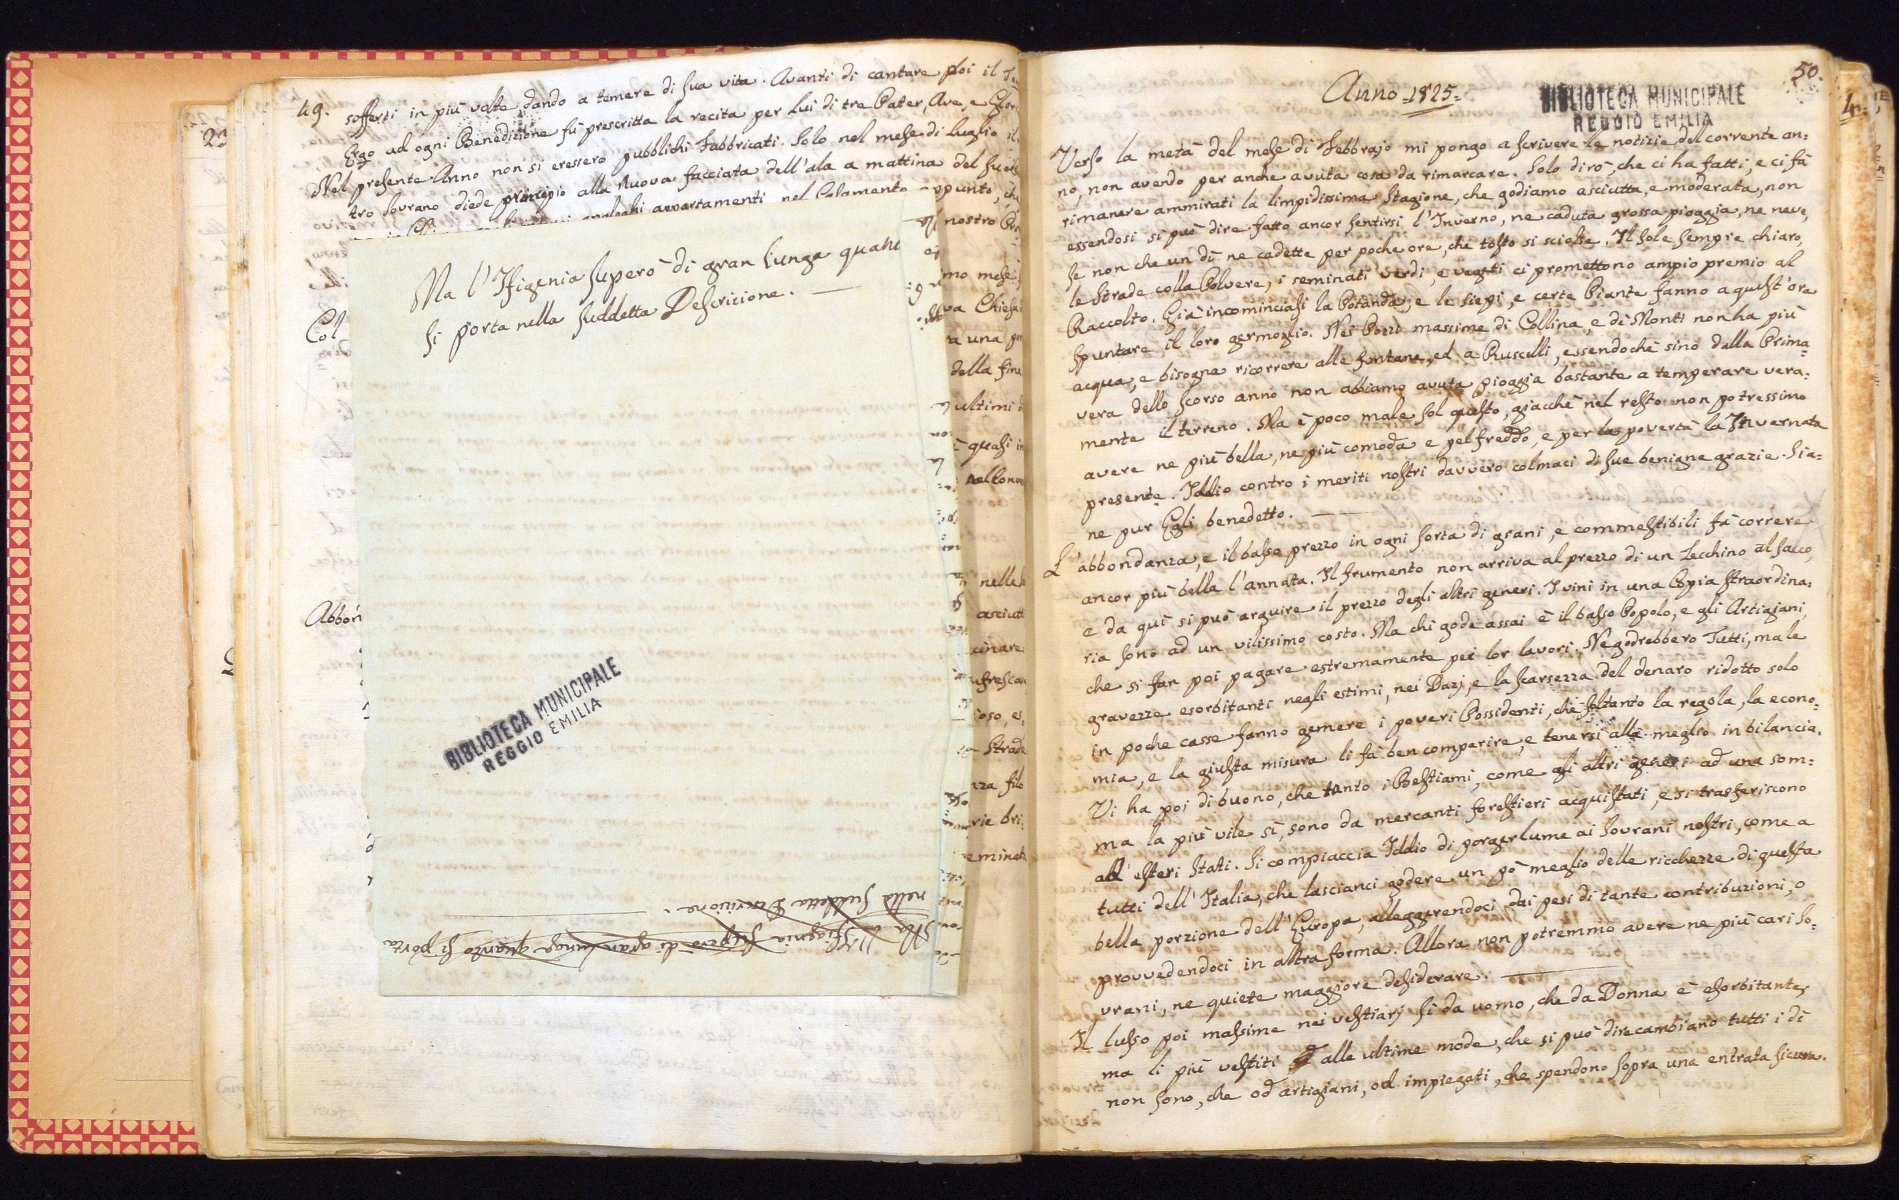 49.
sofferti in più volte dando a temere di sua vita. Avanti di cantare poi il
Ergo ad ogni Benedizione fù prescritta la recita per lui di tre Pater, Ave, e
Nel presente Anno non si eressero pubblichi Fabbricati. Solo nel mese di Luglio il
tro Sovrano diede principio alla nuova facciata dell'ala a mattina del suo
appartamenti
Ma l'Ifigenia superò di gran lunga
si porta nella suddetta Descrizione.
Col
nostro
mo mese
va Chiesa
una
della fine
ultimi
quasi in
nelle
asciutt
Strade
filo
Abbon
BIBLIOTECA MUNICIPALE
REGGIO EMILIA
Ma l'Ifigenia superò di gran lunga quanto si porta
nella suddetta Descrizione.
50.
Anno 1825.
BIBLIOTECA MUNICIPALE
REGGIO EMILIA
Verso la metà del mese di Febbrajo mi pongo a scrivere le notizie del corrente an=
no, non avendo per anche avuta cosa da rimarcare. Solo dirò, che ci ha fatti, e ci fà
rimanere ammirati la limpidissima Stagione, che godiamo asciutta, e moderata, non
essendosi si può dire fatto ancor sentirsi l'Inverno, ne caduta grossa pioggia, ne neve,
se non che un dì ne cadette per poche ore, che tosto si sciolse. Il Sole sempre chiaro,
le Strade colla Polvere, i seminati verdi, e vegeti ci promettono ampio premio al
Raccolto. Già incominciasi la Potanda, e le siepi, e certe Piante fanno a quest'ora
spuntare il loro germoglio. Nei Pozzi massime di Collina, e di Monti non ha più
acqua, e bisogna ricorrere alle fontane, ed a Ruscelli, essendochè sino dalla Prima=
vera dello scorso anno non abbiamo avuta pioggia bastante a temperare vera=
mente il terreno. Ma è poco male sol questo, giacchè nel resto non potressimo
avere ne più bella, ne più comoda e pel freddo, e per la povertà la Invernata
presente. Iddio contro i meriti nostri davvero colmaci di sue benigne grazie. Sia=
ne pur Egli benedetto.
L'abbondanza, e il basso prezzo in ogni sorta di grani, e commestibili fà correre
ancor più bella l'annata. Il frumento non arriva al prezzo di un Zecchino al sacco,
e da quì si può arguire il prezzo degli altri generi. I vini in una Copia straordina=
ria sono ad un vilissimo costo. Ma chi gode assai è il basso Popolo, e gli Artigiani
che si fan poi pagare estremamente pei lor lavori. Ne godrebbero Tutti, ma le
gravezze esorbitanti negli estimi, nei Dazj, e la scarsezza del denaro ridotto solo
in poche casse fanno gemere i poveri Possidenti, che soltanto la regola, la econo=
mia, e la giusta misura li fà ben comparire, e tenersi alla meglio in bilancia.
Vi ha poi di buono, che tanto i Bestiami, come gli altri generi ad una som=
ma la più vile sì, sono da mercanti forestieri acquistati, e si trasferiscono
ad esteri Stati. Si compiaccia Iddio di porger lume ai Sovrani nostri, come a
tutti dell'Italia, che lascianci godere un pò meglio delle ricchezze di questa
bella porzione dell'Europa, alleggerendoci dai pesi di tante contribuzioni, o
provvedendoci in altra forma. Allora non potremmo avere ne più cari So=
vrani, ne quiete maggiore desiderare.
Il lusso poi massime nei vestiarj sì da uomo, che da Donna è esorbitante,
ma li più vestiti alle ultime mode, che si può dire cambiano tutti i dì
non sono, che od artigiani, od impiegati, che spendono sopra una entrata sicura.